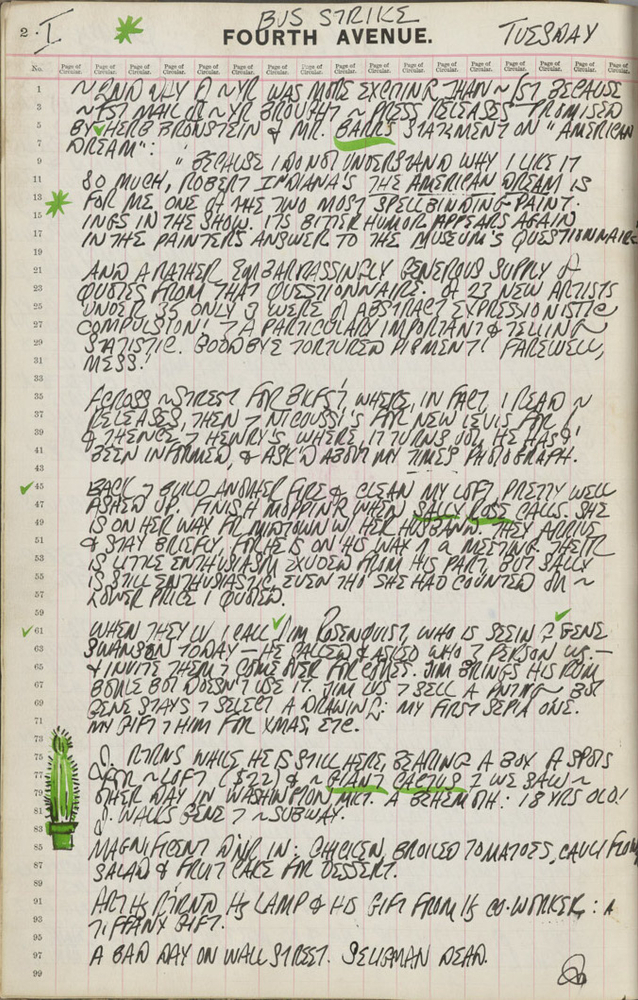 2 · I BUS STRIKE TUESDAY
FOURTH AVENUE.
No. Page of Circular. Page of Circular. Page of Circular. Page of Circular. Page of Circular. Page of Circular. Page of Circular. Page of Circular. Page of Circular. Page of Circular. Page of Circular. Page of Circular. Page of Circular. Page of Circular. Page of Circular. Page of Circular.
1 ~ 2ND DAY OF ~ YR WAS MORE EXCITING THAN ~ 1ST BECAUSE
3 ~ 1ST MAIL OF ~ YR BROUGHT ~ PRESS RELEASES PROMISED
5 BY HERB BRONSTEIN & MR. BARR'S STATEMENT ON "AMERICAN
7 DREAM":
9 "BECAUSE I DO NOT UNDERSTAND WHY I LIKE IT
11 SO MUCH, ROBERT INDIANA'S THE AMERICAN DREAM IS
13 FOR ME ONE OF THE TWO MOST SPELLBINDING PAINT-
15 INGS IN THE SHOW. ITS BITTER HUMOR APPEARS AGAIN
17 IN THE PAINTER'S ANSWER TO THE MUSEUM'S QUESTIONNAIRE
19
21 AND A RATHER EMBARRASSINGLY GENEROUS SUPPLY OF
23 QUOTES FROM THAT QUESTIONNAIRE. OF 23 NEW ARTISTS
25 UNDER 35 ONLY 9 WERE OF ABSTRACT EXPRESSIONISTIC
27 COMPULSION! A PARTICULARLY IMPORTANT & TELLING
29 STATISTIC. GOODBYE TORTURED PIGMENT! FAREWELL,
31 MESS!
33
35 ACROSS ~ STREET FOR BKFST WHERE, IN FACT, I READ ~
37 RELEASES, THEN NICOUSSI'S FOR NEW LEVIS FOR
39 & THENCE HENRY'S WHERE, IT TURNS OUT, HE HAS
41 BEEN INFORMED, & ASK'D ABOUT MY TIMES PHOTOGRAPH.
43
45 BACK BUILD ANOTHER FIRE & CLEAN MY LOFT PRETTY WELL
47 ASHED UP. FINISH MOPPING WHEN SALLY ROSE CALLS. SHE
49 IS ON HER WAY FR MIDTOWN W HER HUSBAND. THEY ARRIVE
51 & STAY BRIEFLY, FOR HE IS ON HIS WAY A MEETING. THERE
53 IS LITTLE ENTHUSIASM EXUDED FROM HIS PART, BUT SALLY
55 IS STILL ENTHUSIASTIC EVEN THO SHE HAD COUNTED ON ~
57 LOWER PRICE I QUOTED.
59
61 WHEN THEY LV I CALL JIM ROSENQUIST, WHO IS SEEING GENE
63 SWANSON TODAY — HE CALLED & ASK'D WHO PERSON —
65 & INVITE THEM COME OVER FOR COFFEE. JIM BRINGS HIS RUM
67 BOTTLE BUT DOESN'T USE IT. JIM LVS SELL A PNTNG BUT
69 GENE STAYS SELECT A DRAWING: MY FIRST SEPIA ONE.
71 MY GIFT HIM FOR XMAS, ETC.
73
75 RTRNS WHILE HE IS STILL HERE, BEARING A BOX OF SPOTS
77 FOR ~ LOFT ($22) & ~ GIANT CACTUS WE SAW ~
79 OTHER DAY IN WASHINGTON MKT. A BEHEMOTH: 18 YRS OLD!
81 WALKS GENE ~ SUBWAY.
83
85 MAGNIFICENT DINR IN: CHICKEN, BROILED TOMATOES, CAULIFLOWR
87 SALAD & FRUIT CAKE FOR DESSERT.
89
91 ART HS RTRND HS LAMP & HIS GIFT FROM HS CO-WORKER: A
93 TIFFANY GIFT.
95
97 A BAD DAY ON WALL STREET. SELIGMAN DEAD.
99